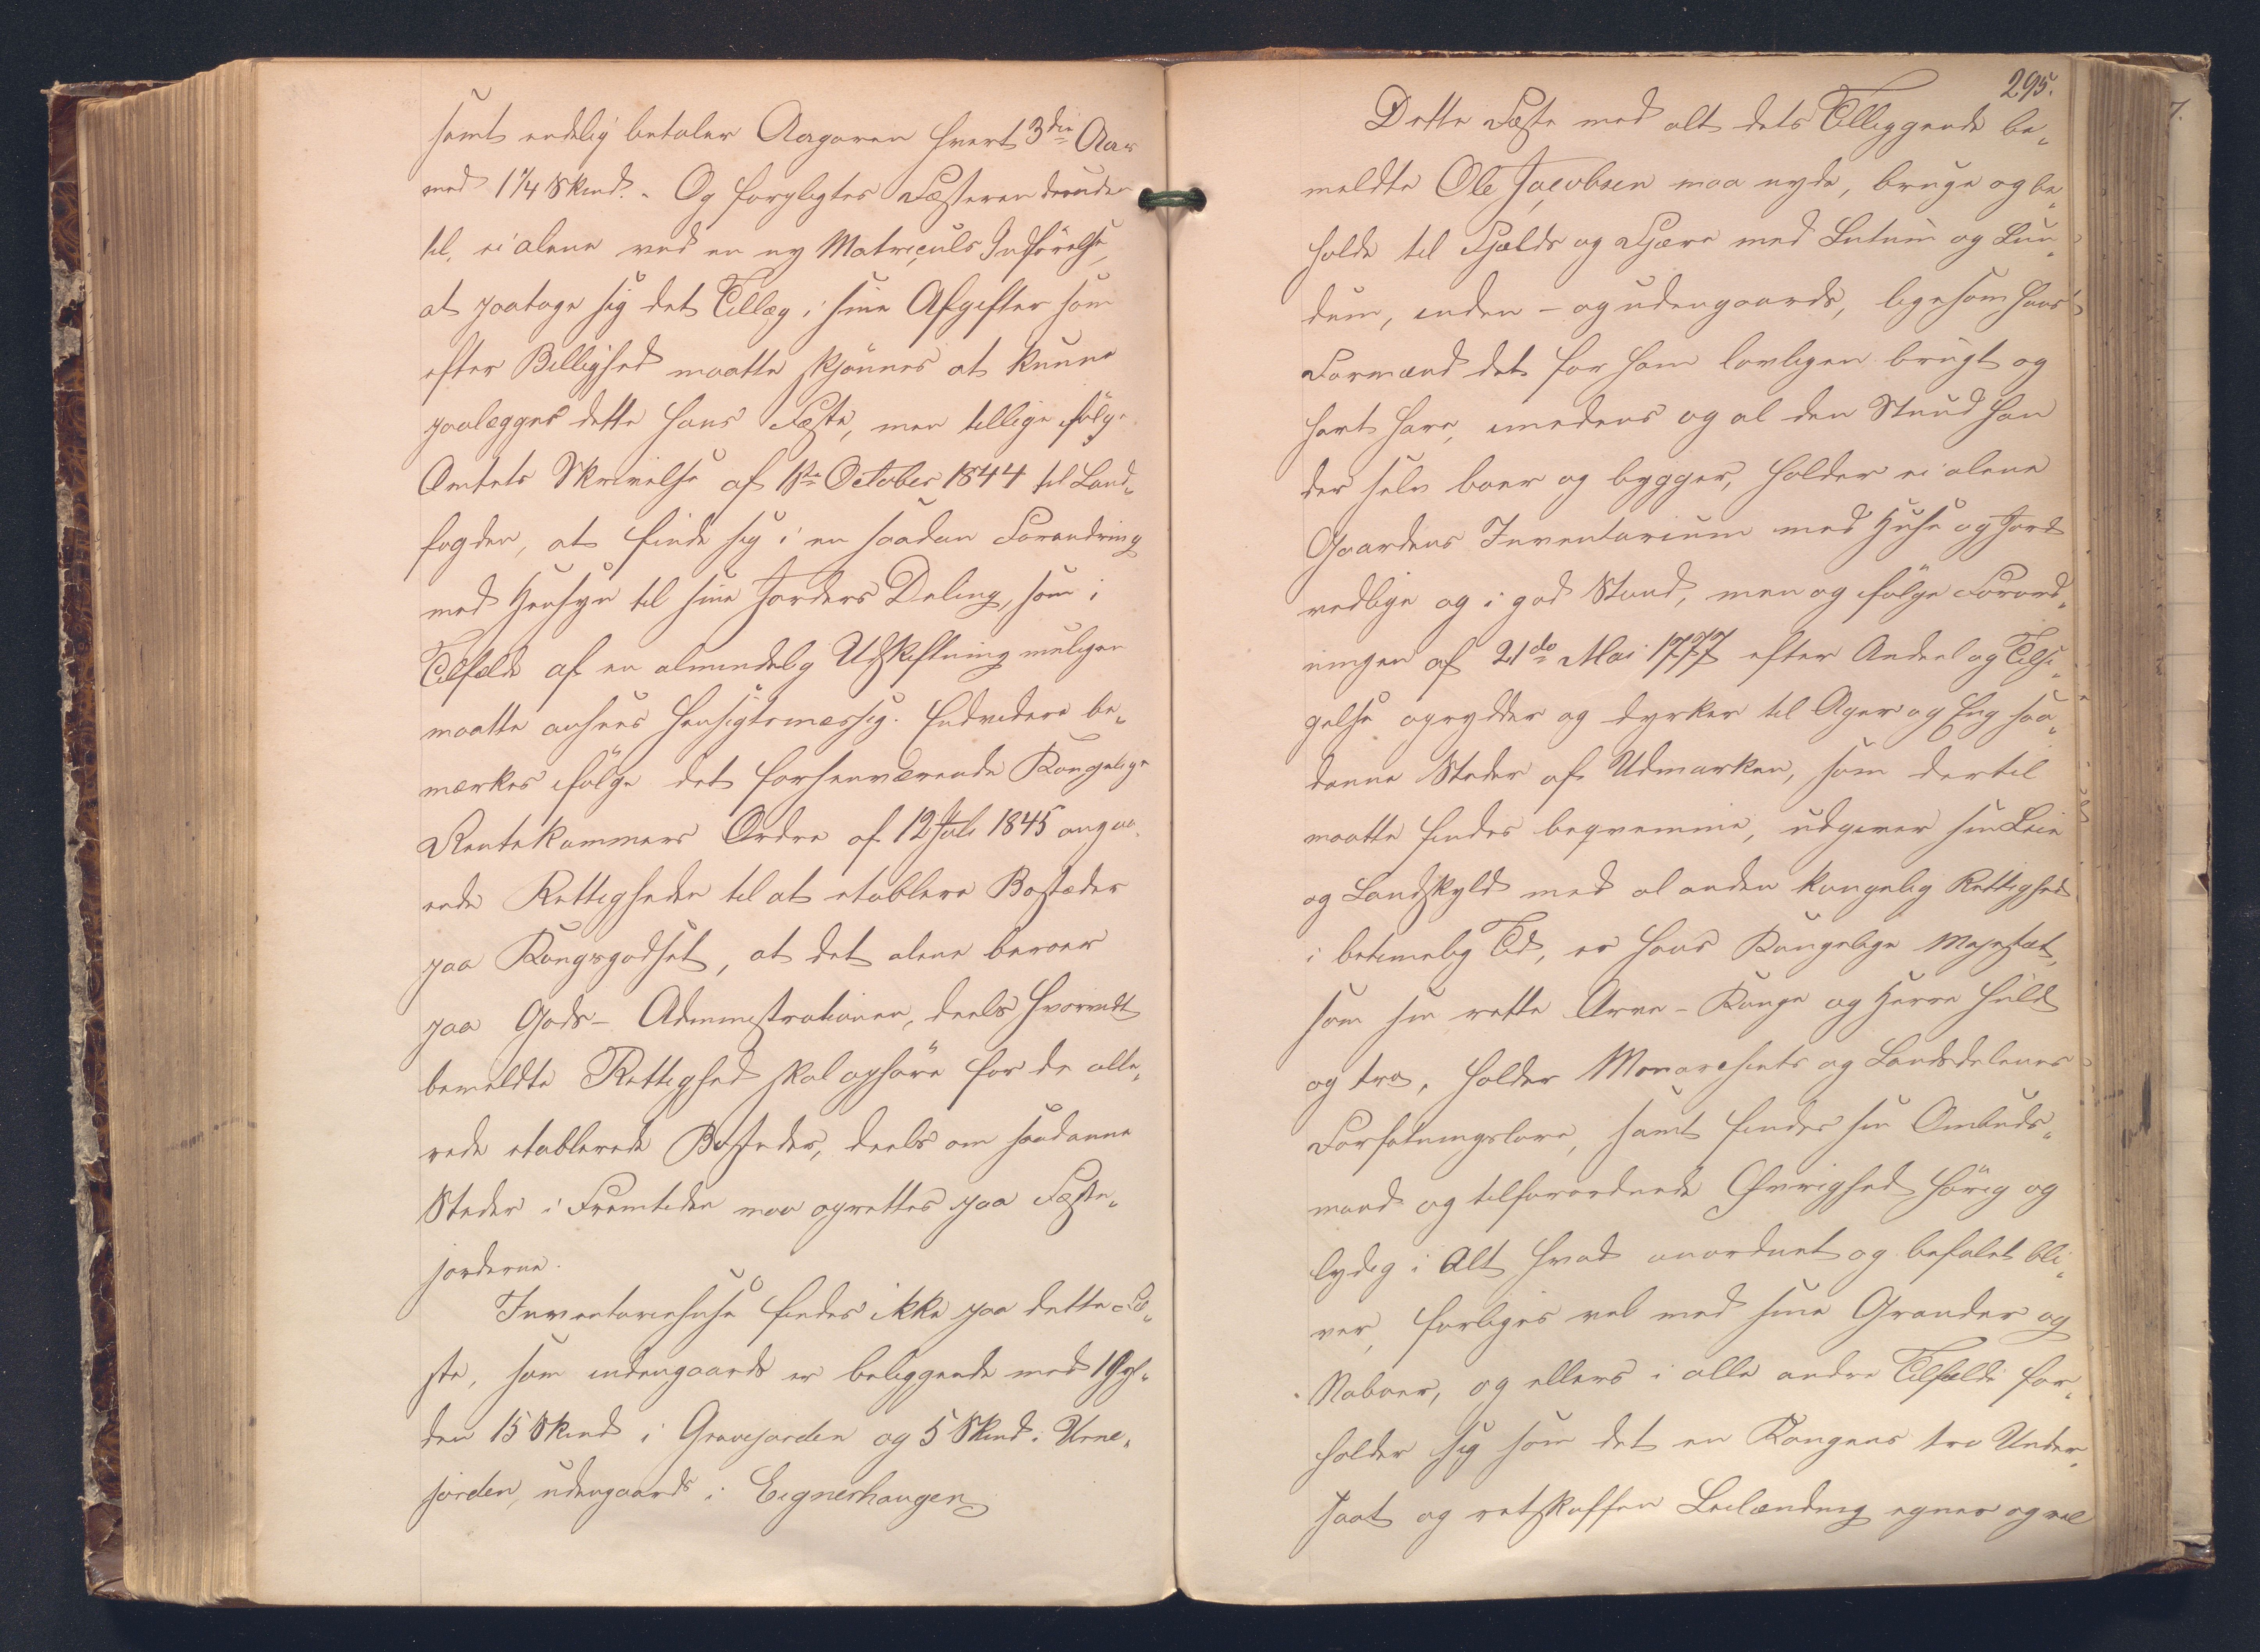 samt endelig betaler Aagaren hvert 3die Aar
med 1 1/4 Skind. - Og forpligtes Fæsteren desuden
til, ei alene ved en ny Matriculs Indförelse,
at paatage sig det Tillæg i sine Afgifter som
efter Billighed maatte skjönnes at kunne
paalægges dette hans Fæste, men tillige ifölge
Amtets Skrivelse af 1ste October 1844 til Land„
fogden, at finde sig i en saadan Forandring
med Hensyn til sine Jorders Deling, som i
Tilfælde af en almindelig Udskiftning muligen
maatte ansees hensigtsmæssig. Endvidere be„
mærkes ifölge det forhenværende Kongelige
Rentekammers Ordre af 12 Juli 1845 angaa„
ende Rettigheden til at etablere Bosteder
paa Kongsgodset, at det alene beroer
paa Gods- Administrationen, deels hvorvidt
bemeldte Rettighed skal ophöre for de alle„
rede etablerede Bosteder, deels om saadanne
Steder i Fremtiden maa oprettes paa Fæste„
jorderne.
Inventariehuse findes ikke paa dette Fæ„
ste, som indengaards er beliggende med 1 Gyl„
den 15 Skind i Gravejorden og 5 Skind i Urne„
jorden, udengaards i Eignerhaugen
295.
Dette Fæste med alt dets Tilliggende be„
meldte Ole Jacobsen maa nyde, bruge og be„
holde til Fjelds og Fjære med Lutum og Lun„
dum, inden- og udengaards, ligesom hans
Formænd det for ham lovligen brugt og
havt have, imedens og al den Stund han
der selv boer og bygger, holder ei alene
Gaardens Inventarium med Huse og Jord
vedlige og i god Stand, men og ifölge Forord„
ningen af 21de Mai 1777 efter Andeel og Tilsi„
gelse oprydder og dyrker til Ager og Eng saa„
danne Steder af Udmarken, som dertil
maatte findes beqvemme, udgiver sin Leie
og Landskyld med al anden kongelig Rettighed
i betimelig Tid, er Hans Kongelige Majestæt,
som sin rette Arve- Konge og Herre huld
og tro, holder Monarchiets og Landsdelenes
Forfatningslove, samt findes sin Ombuds„
mand og tilforordnede Øvrighed hörig og
lydig i Alt hvad anordnet og befalet bli„
ver, forliges vel med sine Grander og
Naboer, og ellers i alle andre Tilfælde for„
holder sig som det en Kongens tro Under„
saat og retskaffen Leilænding egner og vel